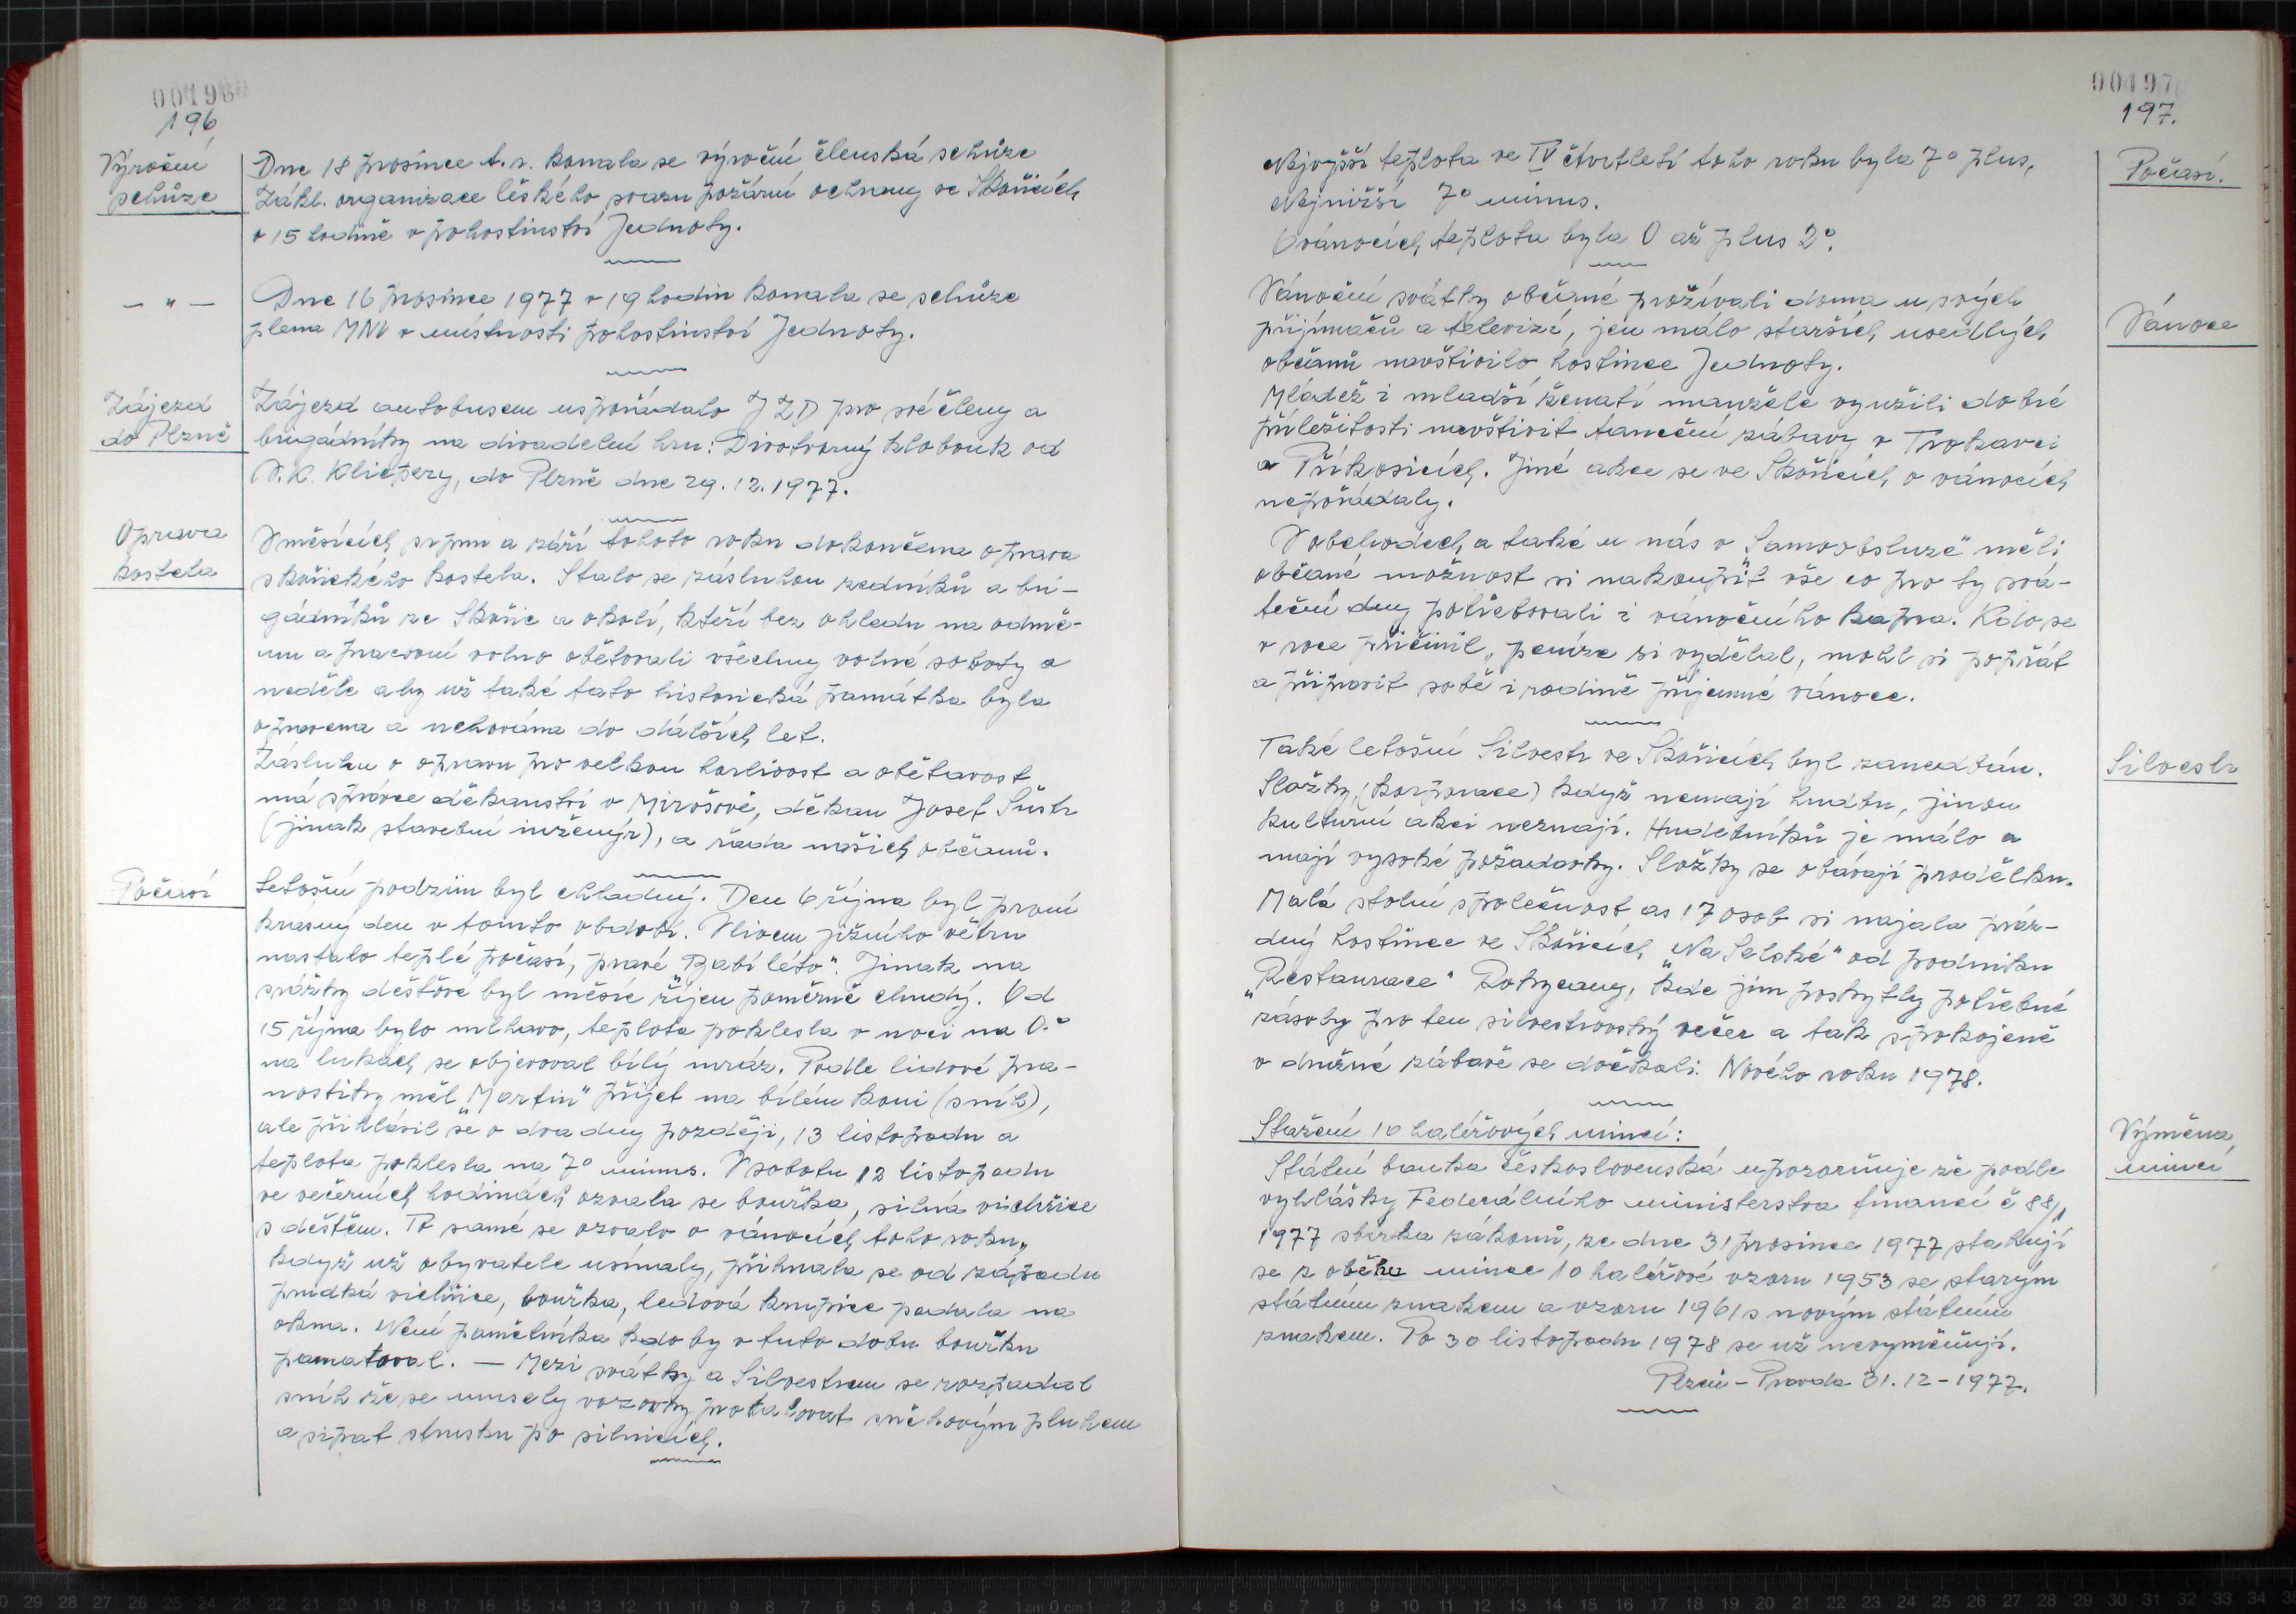 001960
196
Výroční
schůze
Dne 18 prosince t. r. konala se výroční členská schůze
Zákl. organizace českého svazu požární ochrany ve Skořicích
v 15 hodině v pohostinství Jednoty.
— " —
Dne 16 prosince 1977 v 19 hodin konala se schůze
plena MNV v místnosti pohostinství Jednoty.
Zájezd
do Plzně
Zájezd autobusem uspořádalo JZD pro své členy a
brigádníky na divadelní hru: Divotvorný klobouk od
V. K. Klicpery, do Plzně dne 29. 12. 1977.
Oprava
kostela
V měsících srpnu a září tohoto roku dokončena oprava
skořického kostela. Stalo se zásluhou zedníků a bri-
gádníků ze Skořic a okolí, kteří bez ohledu na odmě-
nu a pracovní volno obětovali všechny volné soboty a
neděle aby už také tato historická památka byla
opravena a uchována do dálších let.
Zásluhu o opravu pro velkou horlivost a obětavost
má správce děkanství v Mirošově, děkan Josef Šústr
(jinak stavební inženýr), a řada našich občanů.
Počasí
Letošní podzim byl chladný. Den 6 října byl první
krásný den v tomto období. Vlivem jižního větru
nastalo teplé počasí, pravé „Babí léto". Jinak na
srážky dešťové byl měsíc říjen poměrně chudý. Od
15 října bylo mlhavo, teplota poklesla v noci na 0.°
na lukách se objevoval bílý mráz. Podle lidové pra-
nostiky měl „Martin" přijet na bílém koni (sníh),
ale přihlásil se o dva dny později, 13 listopadu a
teplota poklesla na 7° minus. V sobotu 12 listopadu
ve večerních hodinách ozvala se bouřka, silná vichřice
s deštěm. To samé se ozvalo o vánocích toho roku,
když už obyvatele usínaly, přihnala se od západu
prudká vichřice, bouřka, ledová krupice padala na
okna. Není pamětníka kdo by v tuto dobu bouřku
pamatoval. — Mezi svátky a Silvestrem se rozpadal
sníh že se musely vozovky protahovat sněhovým pluhem
a sípat strusku po silnicích.
00197
197.
Nejvyšší teplota ve IV čtvrtletí toho roku byla 7° plus,
Nejnižší 7° minus.
O vánocích teplota byla 0 až plus 2°.
Počasí.
Vánoční svátky občané prožívali doma u svých
přijímačů a televizí, jen málo starších usedlých
občanů navštívilo hostince Jednoty.
Mládež i mladší ženatí manželé využili dobré
příležitosti navštívit taneční zábavy v Trokavci
a Příkosicích. Jiné akce se ve Skořicích o vánocích
nepořádaly.
Vánoce
V obchodech a také u nás v „Samoobsluze" měli
občané možnost si nakoupit vše co pro ty svá-
teční dny potřebovali i vánočního kapra. Kdo se
v roce přičinil, peníze si vydělal, mohl si popřát
a připravit sobě i rodině příjemné vánoce.
Také letošní Silvestr ve Skořicích byl zanedbán.
Složky, (korporace) když nemají hudbu, jinou
kulturní akci neznají. Hudebníků je málo a
mají vysoké požadavky. Složky se obávají prodělku.
Malá stolní společnost as 17 osob si najala práz-
dný hostinec ve Skořicích „Na Selské" od podniku
„Restaurace" Rokycany, kde jim poskytly potřebné
zásoby pro ten silvestrovský večer a tak spokojeně
v družné zábavě se dočkali Nového roku 1978.
Silvestr
Stažení 10 haléřových mincí:
Státní banka československá upozorňuje že podle
vyhlášky Federálního ministerstva financí č 88/
1977 sbírka zákonů, ze dne 31 prosince 1977 stahují
se z oběhu mince 10 haléřové vzoru 1953 se starým
státním znakem a vzoru 1961 s novým státním
znakem. Po 30 listopadu 1978 se už nevyměňují.
Plzeň – Pravda 31. 12 – 1977.
Výměna
mincí